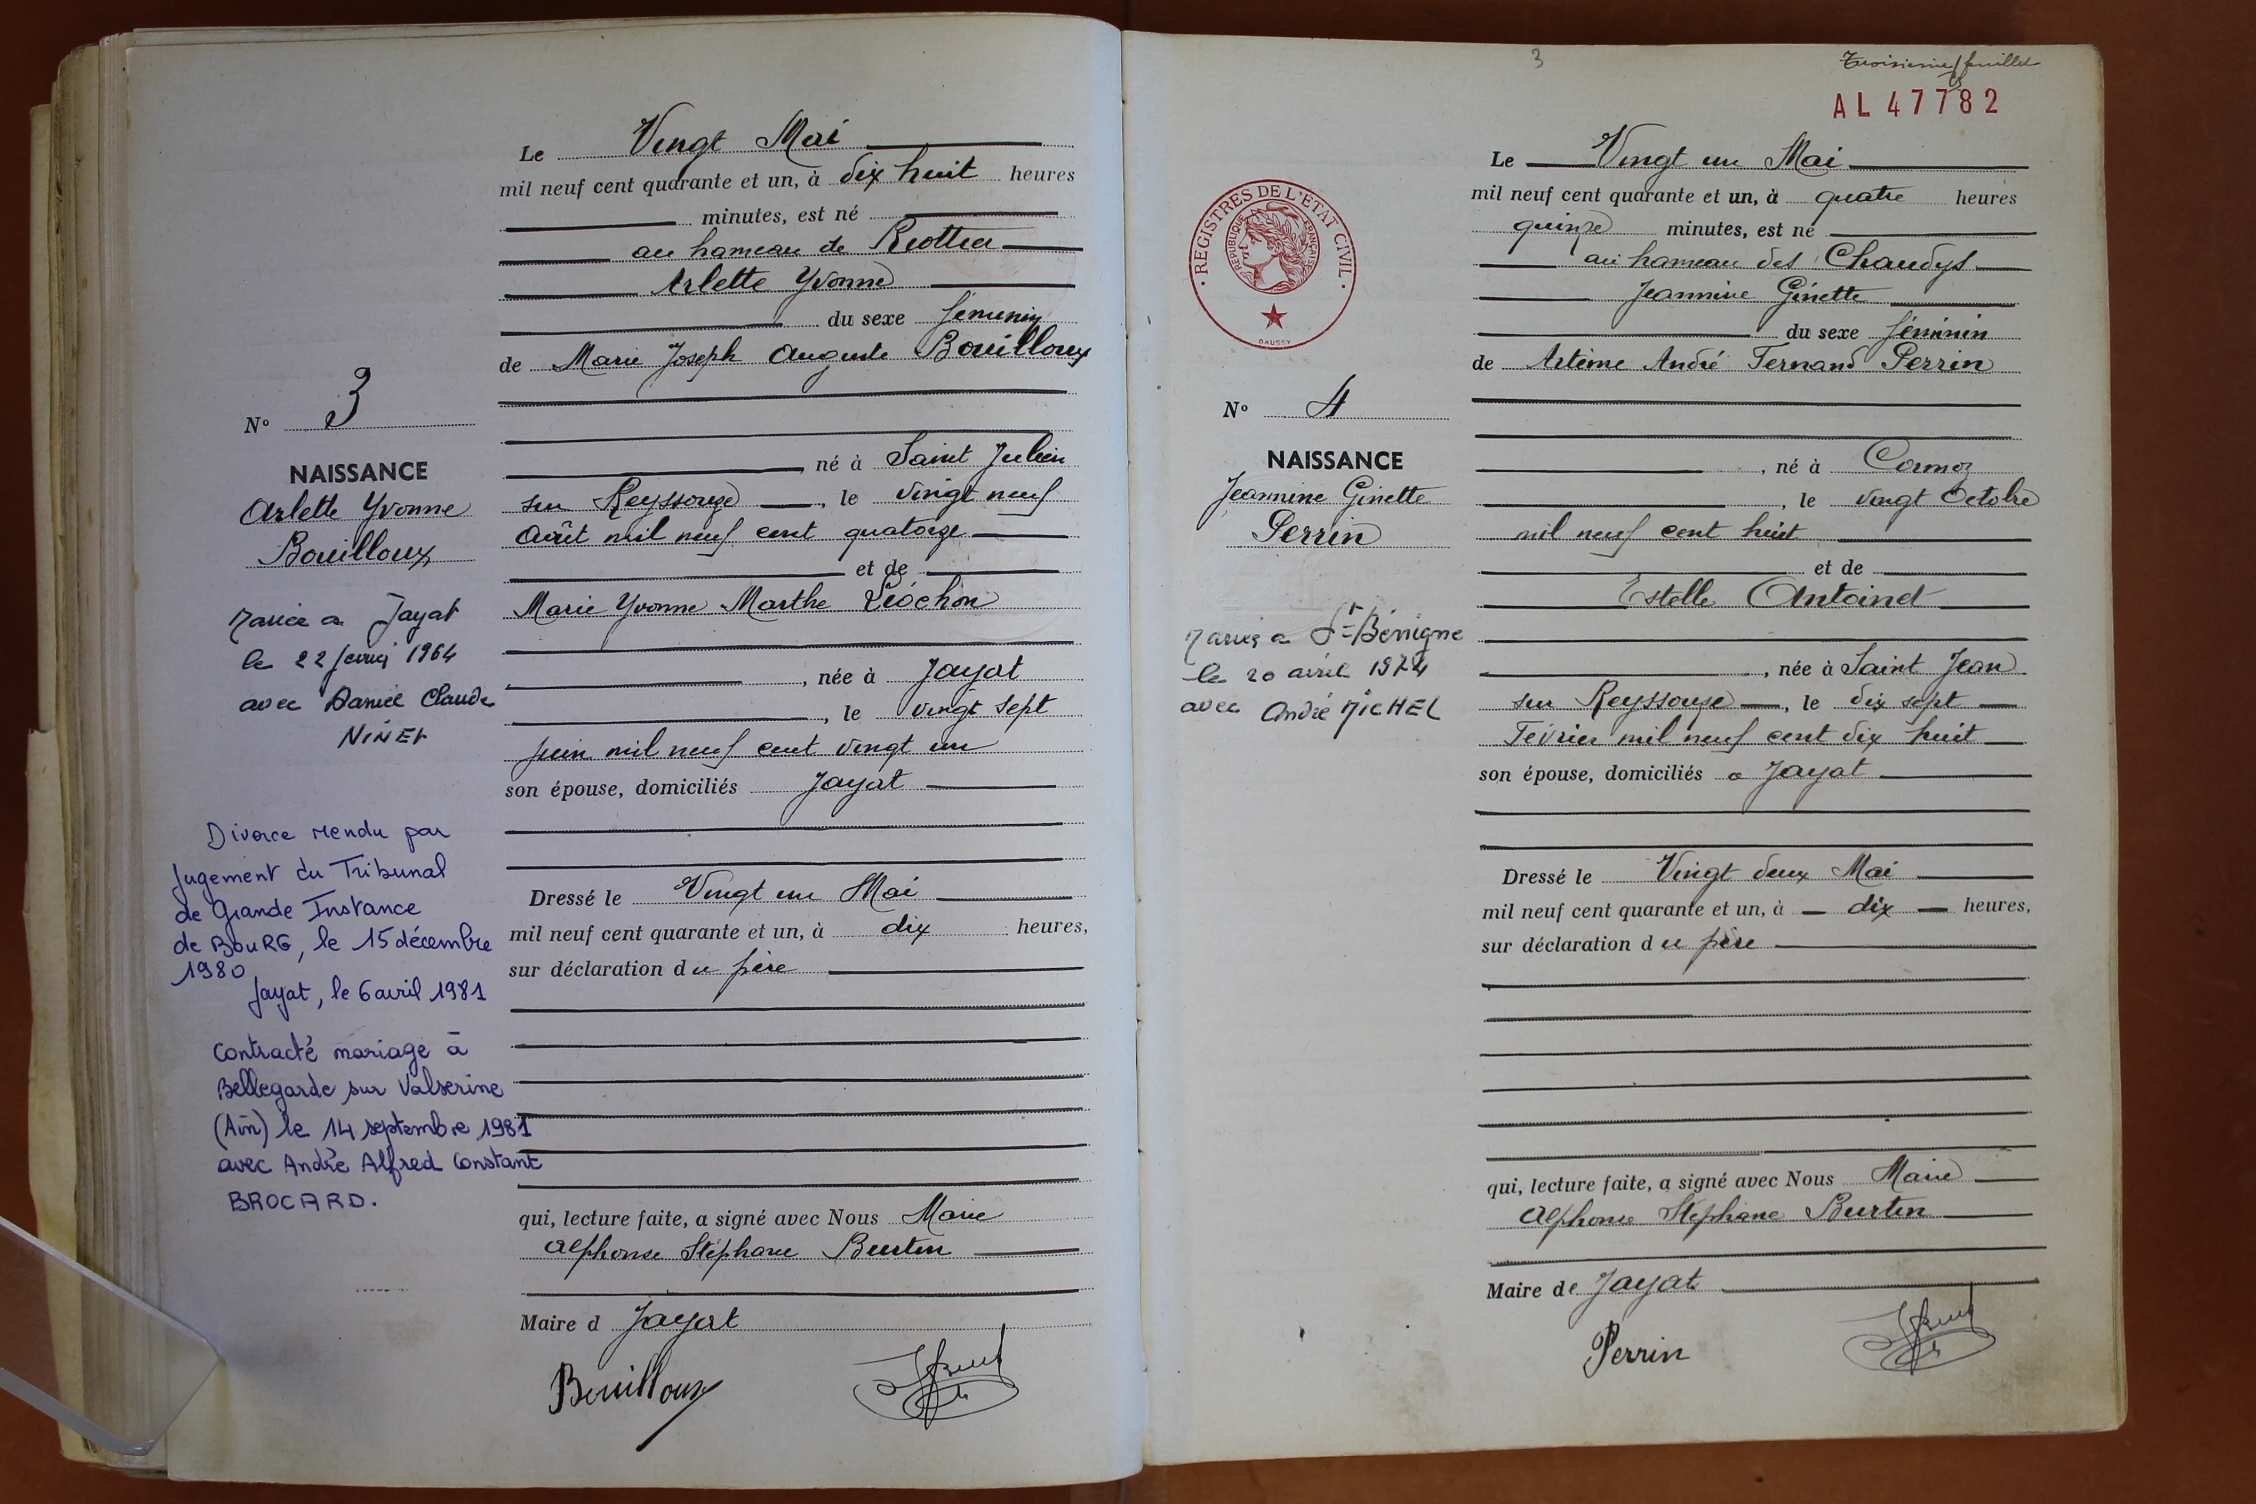 Le Vingt Mai
mil neuf cent quarante et un, à dix huit heures
minutes, est né
au hameau de
Arlette Yvonne
du sexe féminin
de Marie Joseph Auguste Bouilloux
N° 3
né à Saint Julien
NAISSANCE
sur Reyssouze, le vingt neuf
Arlette Yvonne
Août mil neuf cent quatorze
Bouilloux
et de
Marie Yvonne Marthe Pochon
Mariée a Jayat
le 22 février 1964
avec Daniel Claude
NINET
, née à Jayat
, le vingt sept
juin mil neuf cent vingt un
son épouse, domiciliés Jayat
Divorce rendu par
Jugement du Tribunal
de Grande Instance
de BOURG, le 15 décembre
1980
Jayat, le 6 avril 1981
Contracté mariage à
Bellegarde sur Valserine
(Ain) le 14 septembre 1981
avec André Alfred Constant
BROCARD.
Dressé le Vingt un Mai
mil neuf cent quarante et un, à dix heures,
sur déclaration du père
qui, lecture faite, a signé avec Nous Marie
Alphonse Stéphane Burtin
Maire d Jayat
Bouilloux
3
Troisième feuillet
AL 47782
REGISTRES DE L'ETAT CIVIL
REPUBLIQUE FRANÇAISE
DAUSSY
Le Vingt un Mai
mil neuf cent quarante et un, à quatre heures
quinze minutes, est né
au hameau des Chaudys
Jeannine Ginette
du sexe féminin
de Artème André Fernand Perrin
N° 4
NAISSANCE
Jeannine Ginette
Perrin
Mariée a St-Bénigne
le 20 avril 1974
avec André MICHEL
, né à Cormoz
, le vingt Octobre
mil neuf cent huit
et de
Estelle Antoinet
, née à Saint Jean
sur Reyssouze, le dix sept
Février mil neuf cent dix huit
son épouse, domiciliés a Jayat
Dressé le Vingt deux Mai
mil neuf cent quarante et un, à dix heures,
sur déclaration du père
qui, lecture faite, a signé avec Nous Marie
Alphonse Stéphane Burtin
Maire de Jayat
Perrin